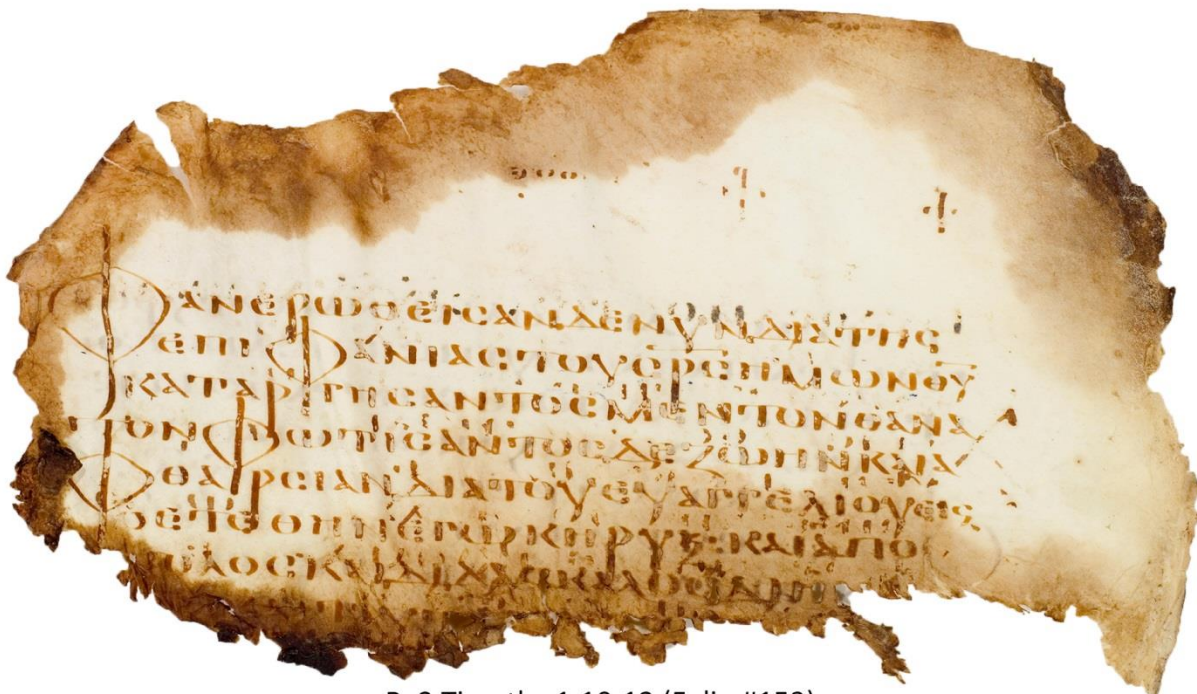 ΦΑΝΕΡΩΘΕΙCΑΝΔΕΝΥΝΔΙΑΤΗC
ΕΠΙΦΑΝΙΑCΤΟΥC̅Ρ̅C̅ΗΜΩΝΘ̅Υ̅
ΚΑΤΑΡΓΗCΑΝΤΟCΜΕΝΤΟΝΘΑΝΑ
ΤΟΝΦΩΤΙCΑΝΤΟCΔΕΖΩΗΝΚΑΙΑ
ΦΘΑΡCΙΑΝΔΙΑΤΟΥΕΥΑΓΓΕΛΙΟΥΕΙC
ΟΕΤΕΘΗΝΕΓΩΚΗΡΥΞ:ΚΑΙΑΠΟ
ΟΛΟCΚΑΙΔΙΔΑCΚΑΛΟC
2 Timothy